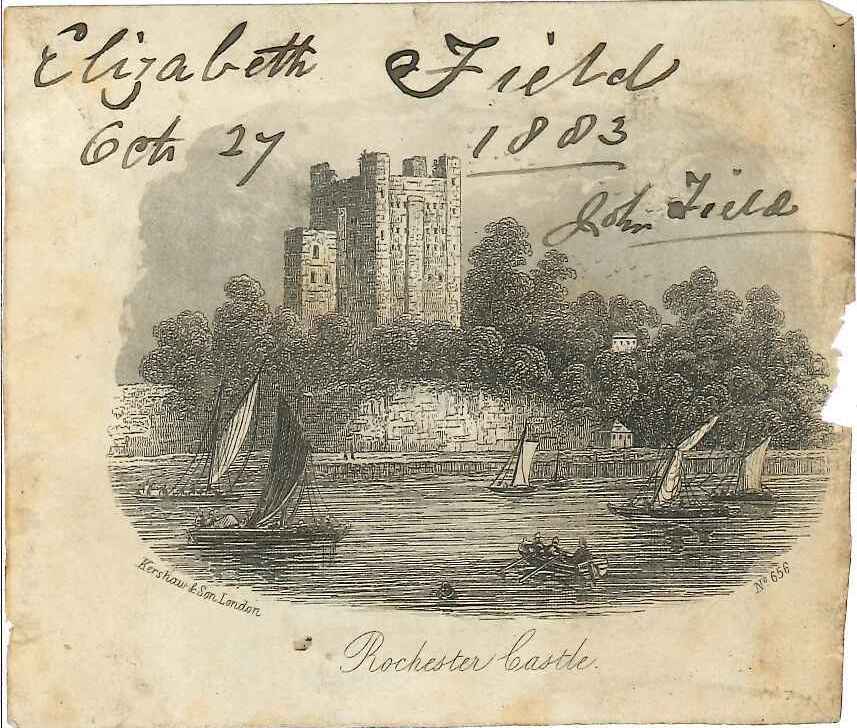 Elizabeth Field
Oct 27 1883
John Field
Kershaw & Son, London
No 656
Rochester Castle.